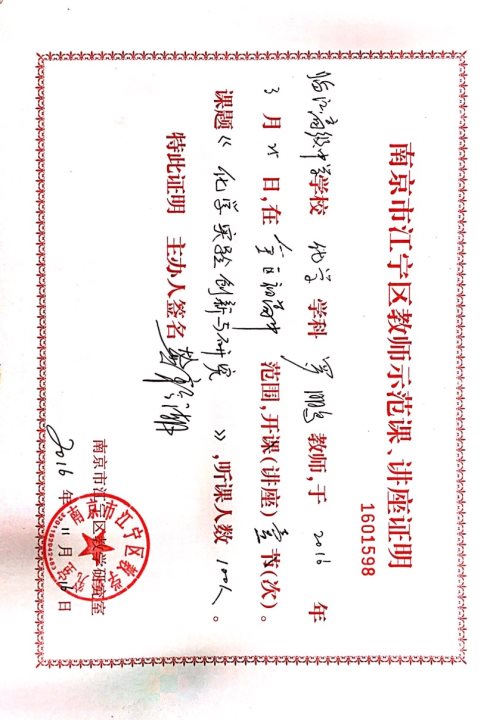 南京市江宁区教师示范课、讲座证明
1601598
临江高级中学学校 化学 学科 罗鹏 教师,于 2016 年
3 月 25 日,在 全区初高中 范围,开课(讲座) 壹 节(次)。
课题《 化学实验创新与研究 》,听课人数 100人 。
特此证明 主办人签名
南京市江宁区教学研究室
2016 年 11 月 16 日